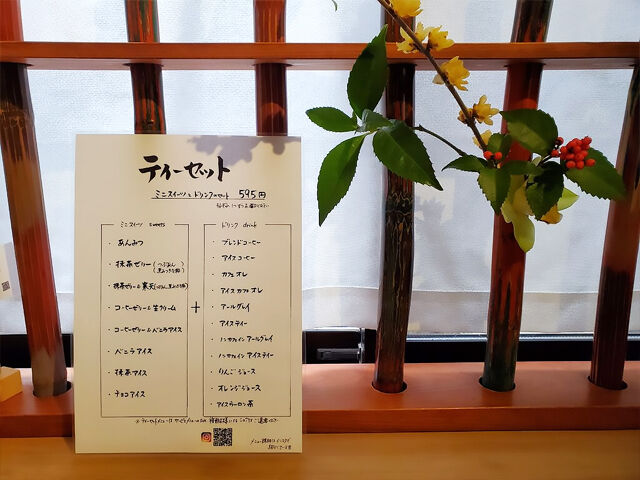 ティーセット
ミニスイーツとドリンクのセット 595円
ミニスイーツ sweets
・あんみつ
・抹茶ゼリー(つぶあん
・抹茶ゼリー&寒天
・コーヒーゼリー&生クリーム
・コーヒーゼリー&バニラアイス
・バニラアイス
・抹茶アイス
・チョコアイス
+
ドリンク drink
・ブレンドコーヒー
・アイスコーヒー
・カフェオレ
・アイスカフェオレ
・アールグレイ
・アイスティー
・ノンカフェインアールグレイ
・ノンカフェインアイスティー
・りんごジュース
・オレンジジュース
・アイスウーロン茶